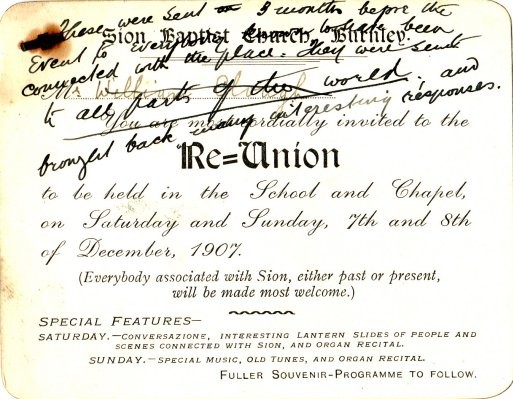 These were sent 3 months before the
event to everyone to have been
connected with the place. They were sent
to all parts of the world. and
brought back many interesting responses.
Sion Baptist Church, Burnley.
Mr William
You are most cordially invited to the
Re=Union
to be held in the School and Chapel,
on Saturday and Sunday, 7th and 8th
of December, 1907.
(Everybody associated with Sion, either past or present,
will be made most welcome.)
SPECIAL FEATURES—
SATURDAY.—CONVERSAZIONE, INTERESTING LANTERN SLIDES OF PEOPLE AND
SCENES CONNECTED WITH SION, AND ORGAN RECITAL.
SUNDAY.—SPECIAL MUSIC, OLD TUNES, AND ORGAN RECITAL.
FULLER SOUVENIR-PROGRAMME TO FOLLOW.